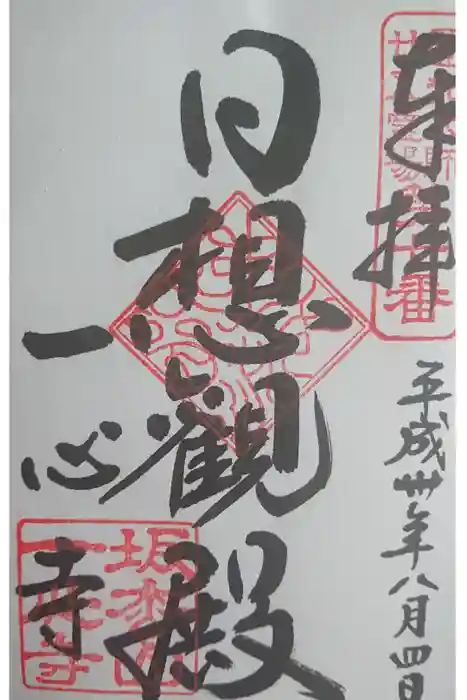 奉拝
平成卅年八月四日
日想観殿
一心寺
坂松山
一心寺